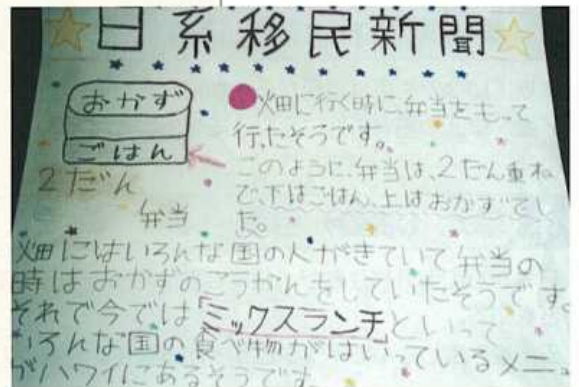 日系移民新聞
おかず
ごはん
2だん
弁当
畑に行く時に、弁当をもって
行たそうです。
このように、弁当は、2だん重ね
で、下はごはん、上はおかずでし
た。
畑にはいろんな国の人がきていて弁当の
時はおかずのこうかんをしていたそうです。
それで今では「ミックスランチ」といって
いろんな国の食べ物がはいっているメニュ
がハワイにあるそうです。